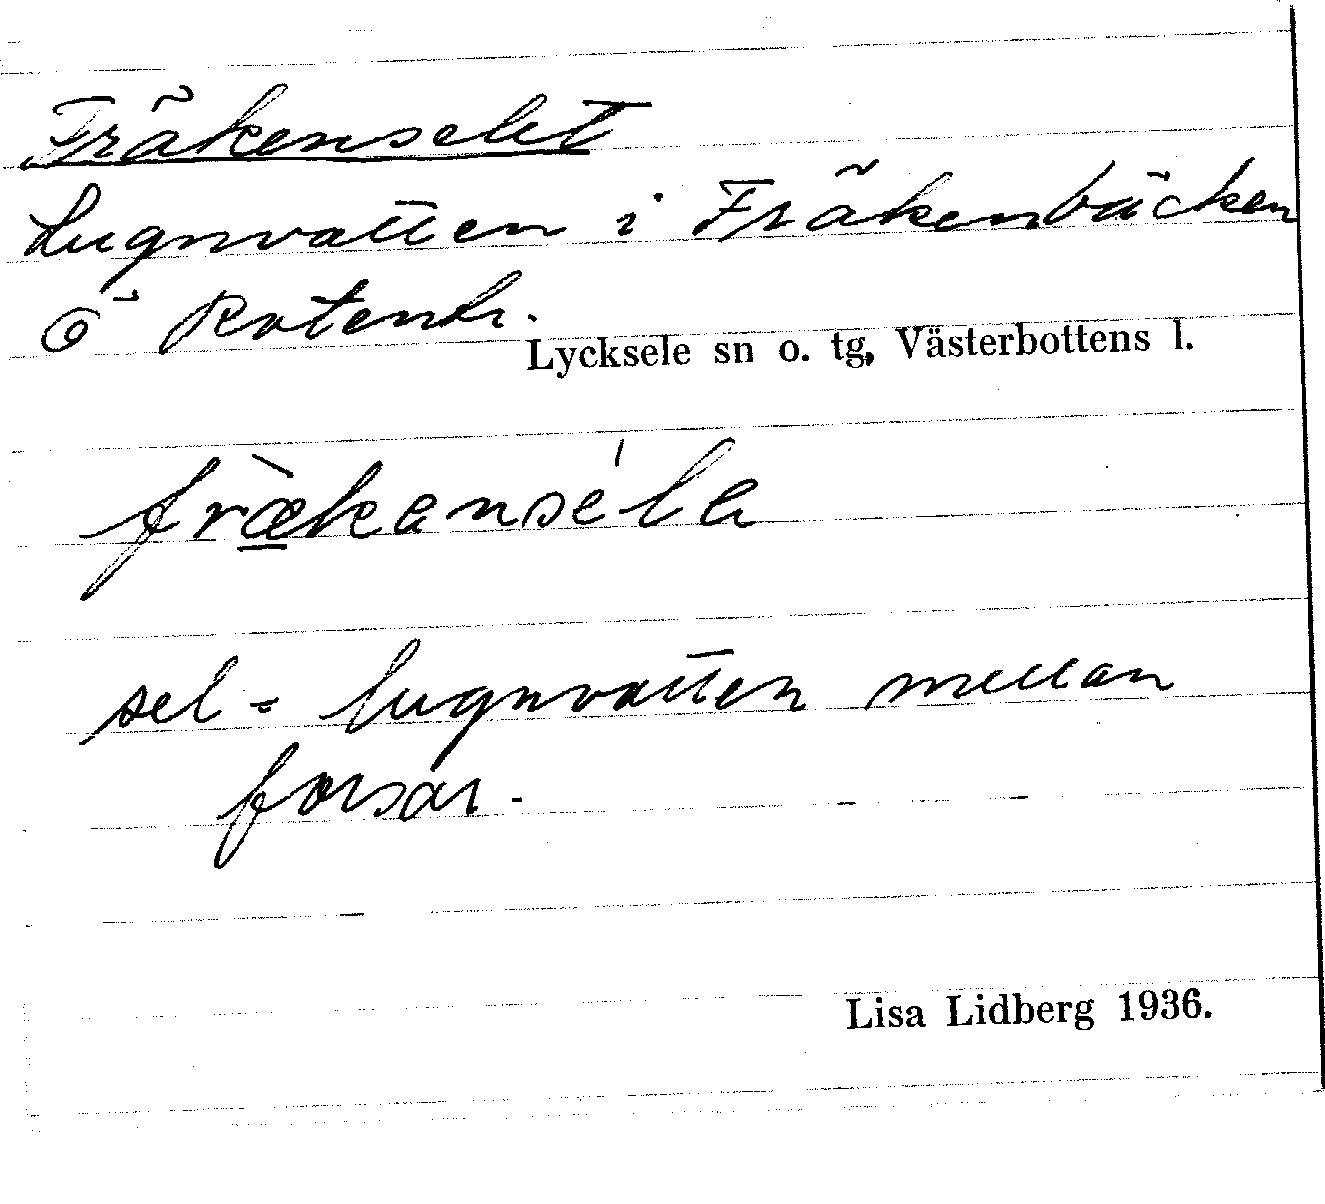 Fräkenselet
Lugnvatten i Fräkenbäcken
Ö
Lycksele sn o. tg, Västerbottens l.
fræ̀kenséle
sel = lugnvatten mellan
forsar.
Lisa Lidberg 1936.